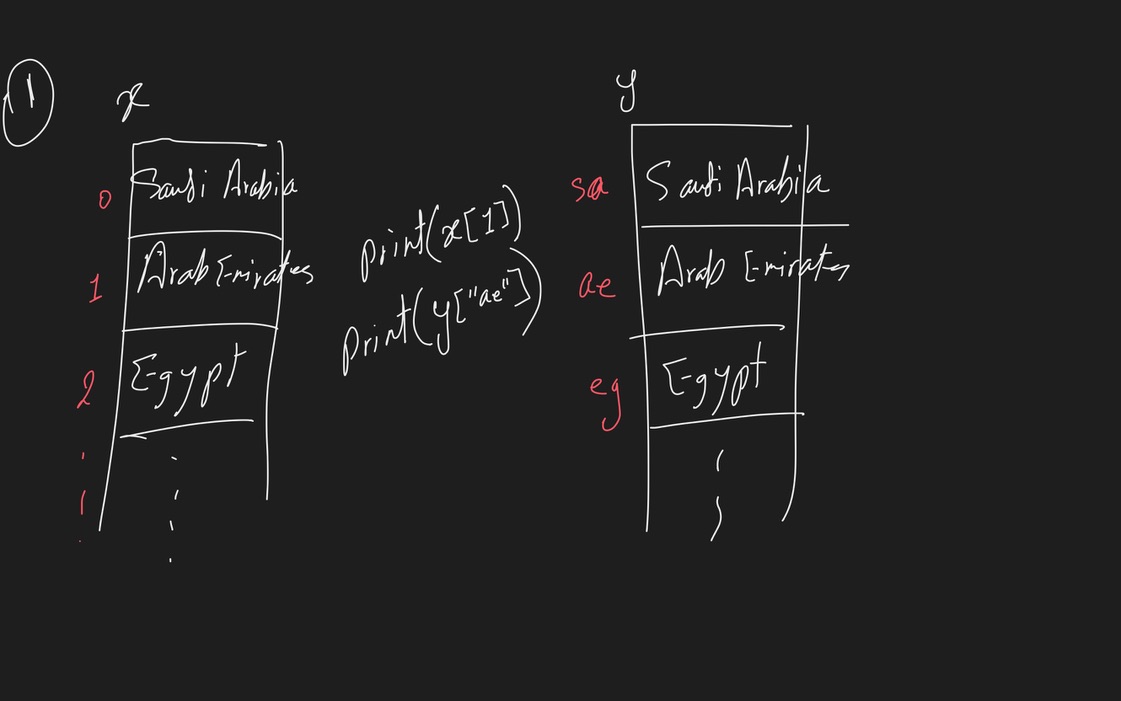 1
x
0 Saudi Arabia
1 Arab Emirates
2 Egypt
print(x[1])
print(y["ae"])
y
sa Saudi Arabia
ae Arab Emirates
eg Egypt